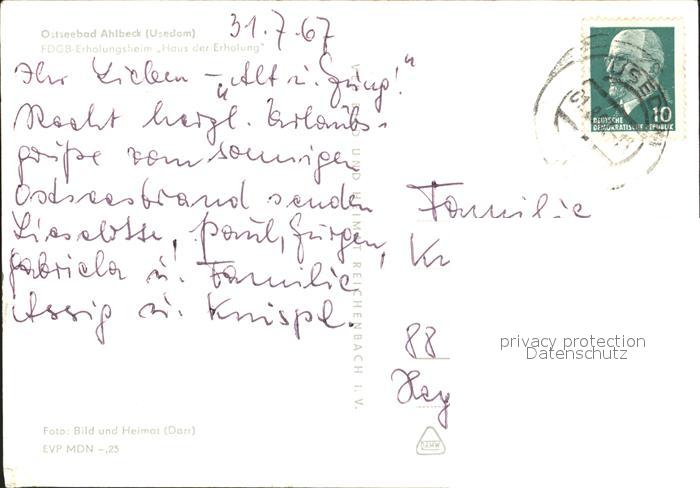 Ostseebad Ahlbeck (Usedom)
FDGB-Erholungsheim „Haus der Erholung"
31.7.67
Ihr Lieben – „Alt u. Jung!"
Recht herzl. Urlaubs-
grüße vom sonnigen
Ostseestrand senden
Lieselotte, Paul, Jürgen,
Gabriela u. Familie
Assig u. Knispel.
Familie
Kr
88
privacy protection
Datenschutz
Foto: Bild und Heimat (Darr)
EVP MDN –,25
BILD UND HEIMAT REICHENBACH I. V.
10
DEUTSCHE
DEMOKRATISCHE REPUBLIK